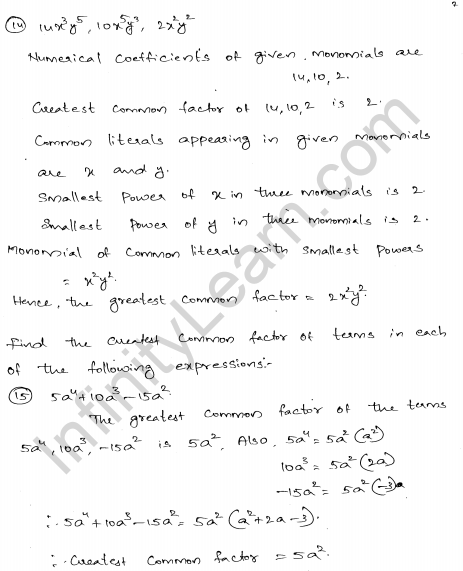 2
(14) 14x³y⁵, 10x⁵y³, 2x²y²
Numerical Coefficient's of given monomials are
14, 10, 2.
Greatest common factor of 14, 10, 2 is 2.
Common literals appearing in given monomials
are x and y.
Smallest Power of x in three monomials is 2
Smallest Power of y in three monomials is 2.
Monomial of Common literals with smallest Powers
= x²y².
Hence, the greatest common factor = 2x²y².
Find the Greatest Common factor of terms in each
of the following expressions:-
(15) 5a⁴+10a³-15a².
The greatest Common factor of the terms
5a⁴, 10a³, -15a² is 5a². Also, 5a⁴ = 5a²(a²)
10a³ = 5a²(2a)
-15a² = 5a²(-3)
∴ 5a⁴+10a³-15a² = 5a²(a²+2a-3).
∴ Greatest Common factor = 5a².
InfinityLearn.com